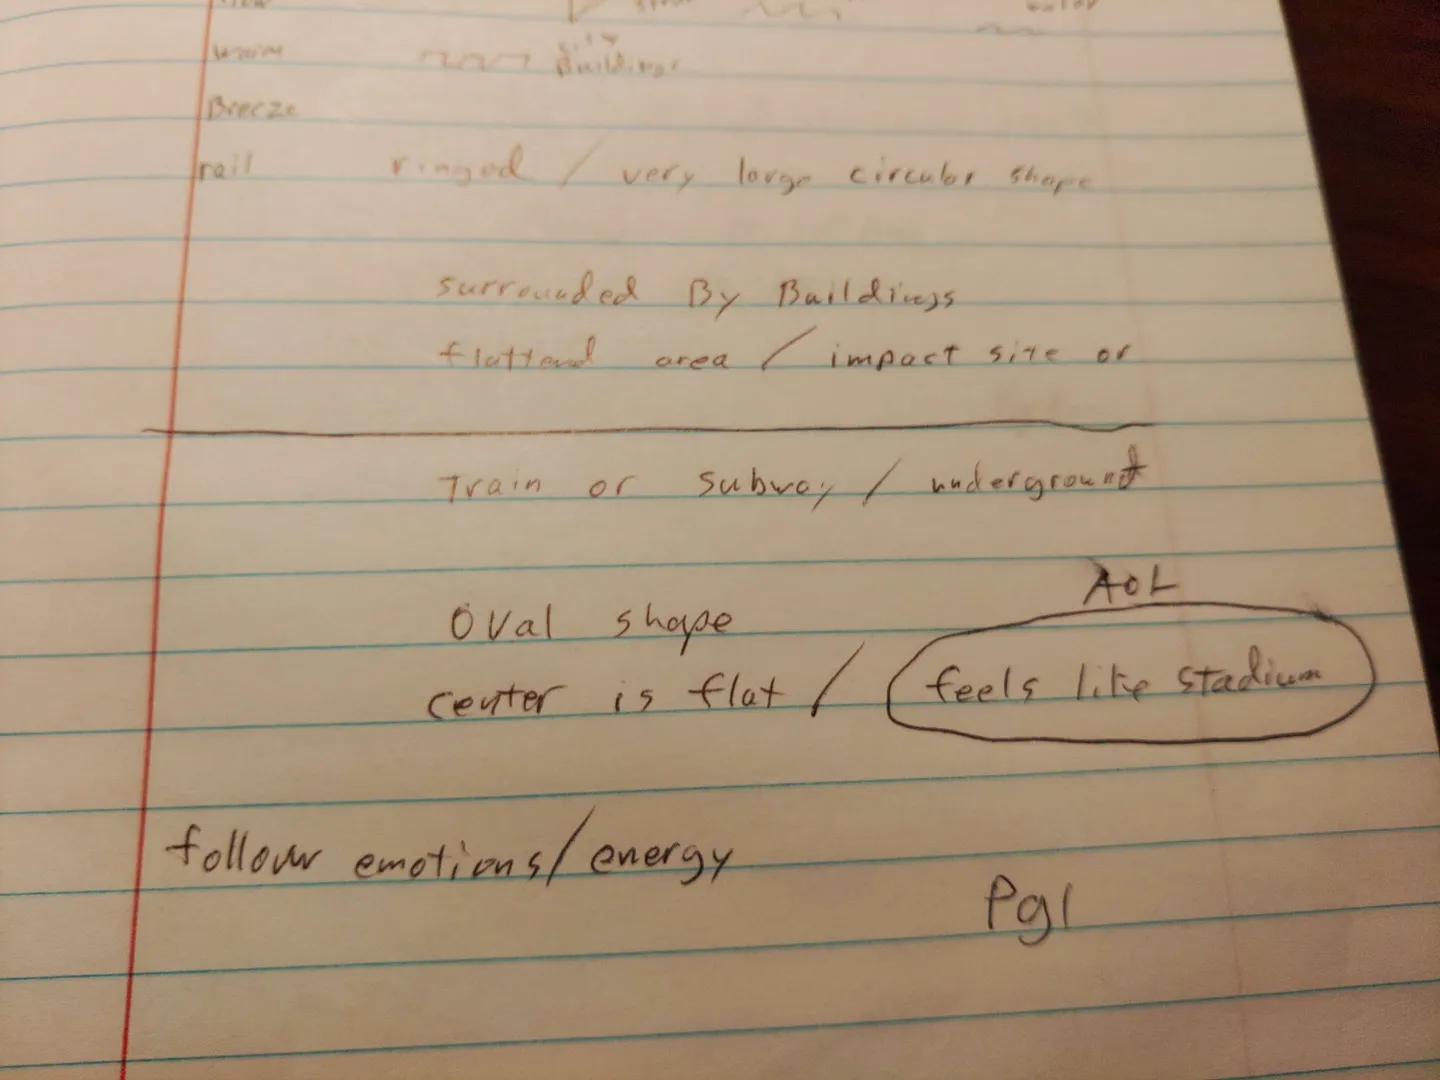 warm
city
Buildings
Breeze
rail ringed / very large circular shape
surrounded By Buildings
flattend area / impact site or
Train or subway / underground
AOL
oval shape
center is flat / feels like stadium
follow emotions/energy
Pg1